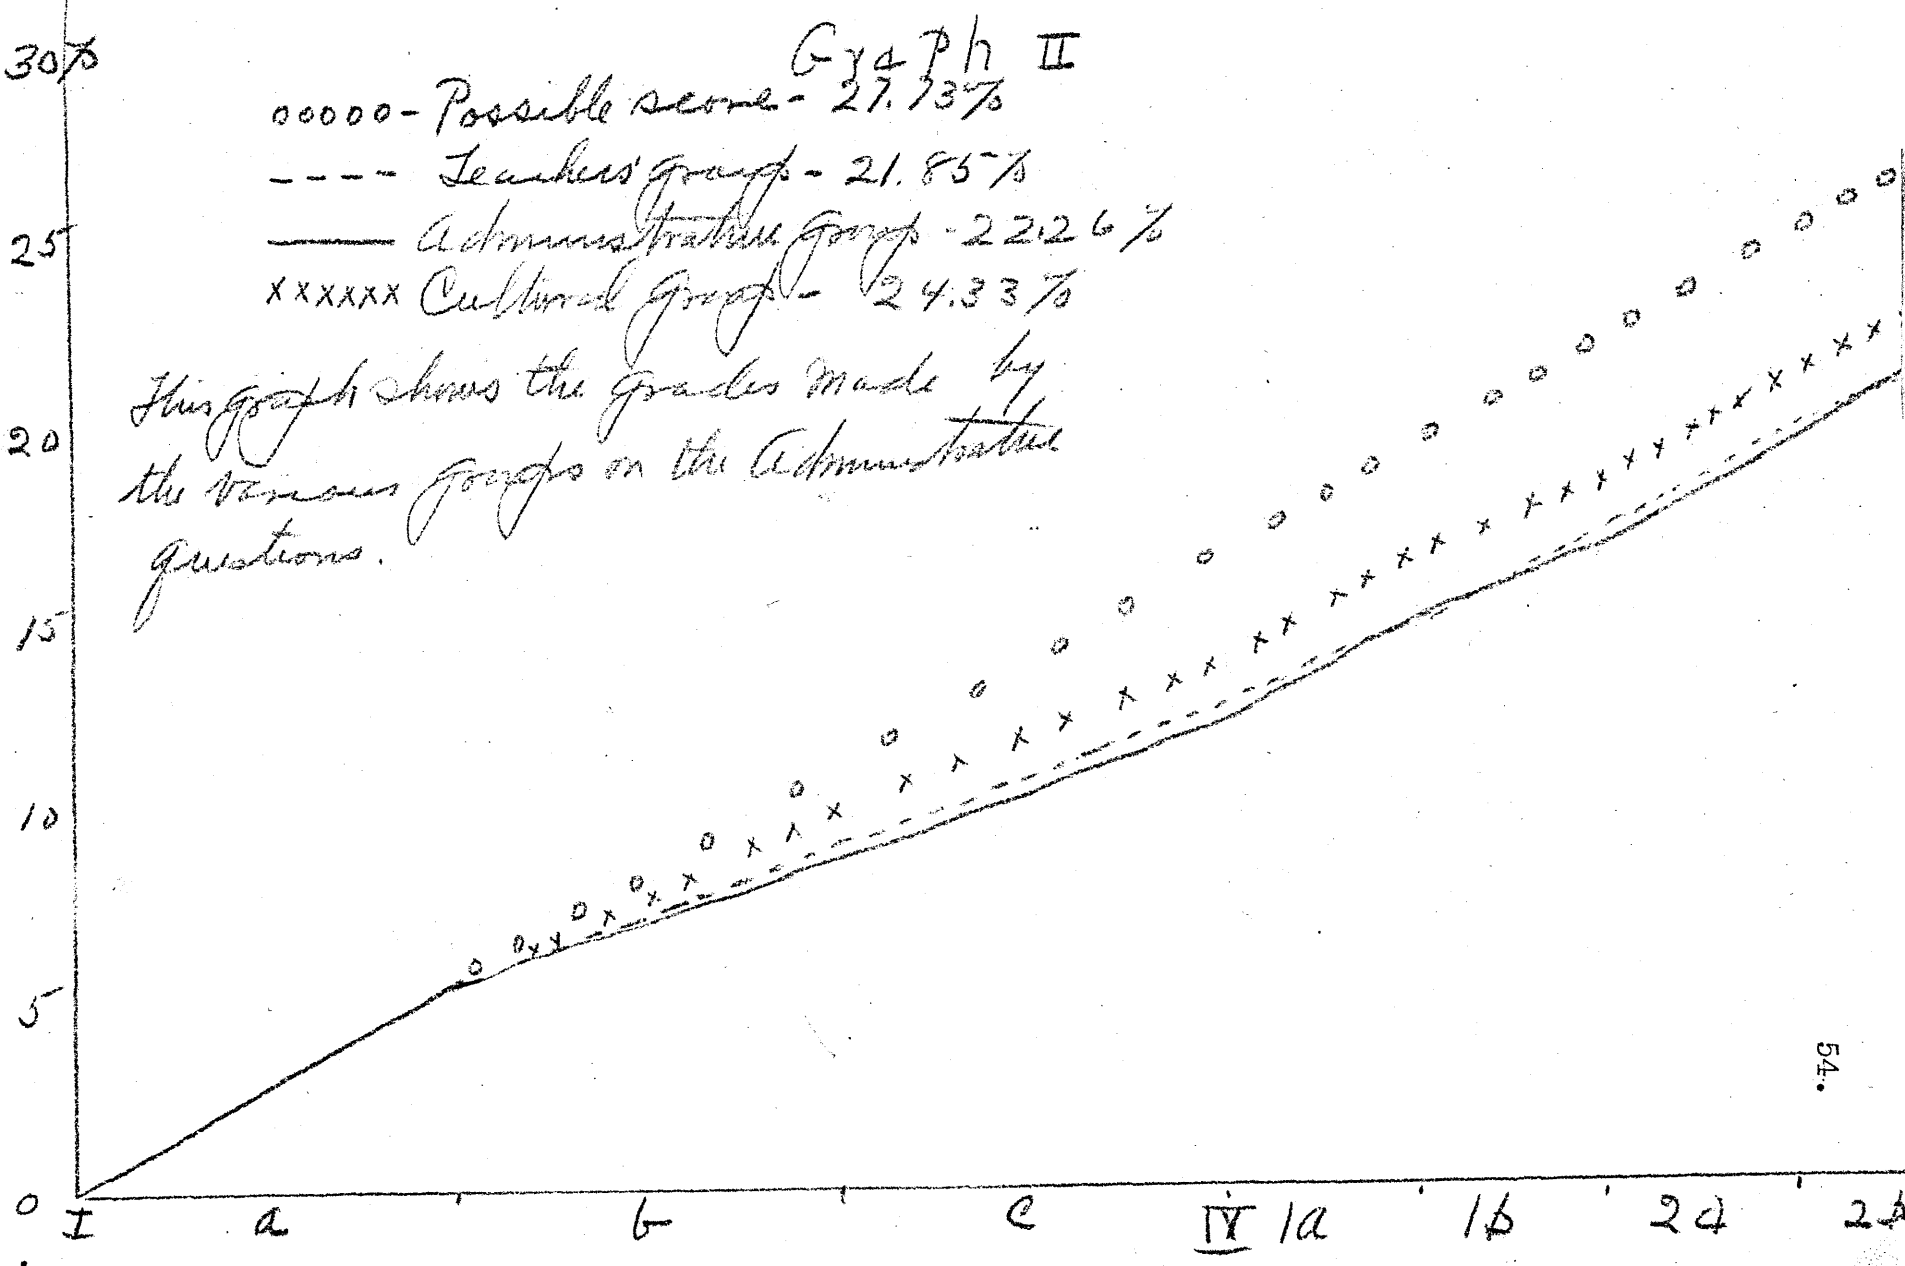 Graph II
30%
ooooo - Possible score - 27.73%
---- Teachers' group - 21.85%
—— Administrative group - 22.26%
xxxxxx Cultural group - 24.33%
This graph shows the grades made by
the various groups on the Administrative
questions.
25
20
15
10
5
0
I a b c IV 1a 1b 2a 2b
54.